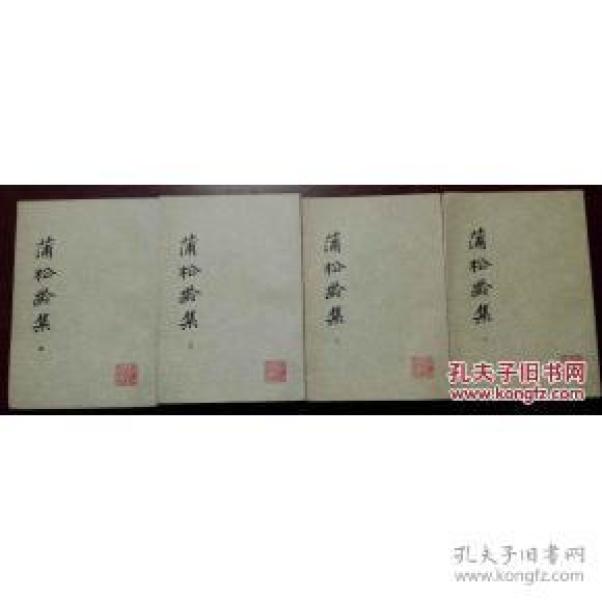 蒲松龄集
蒲松龄集
蒲松龄集
蒲松龄集
孔夫子旧书网
www.kongfz.com
孔夫子旧书网
www.kongfz.com